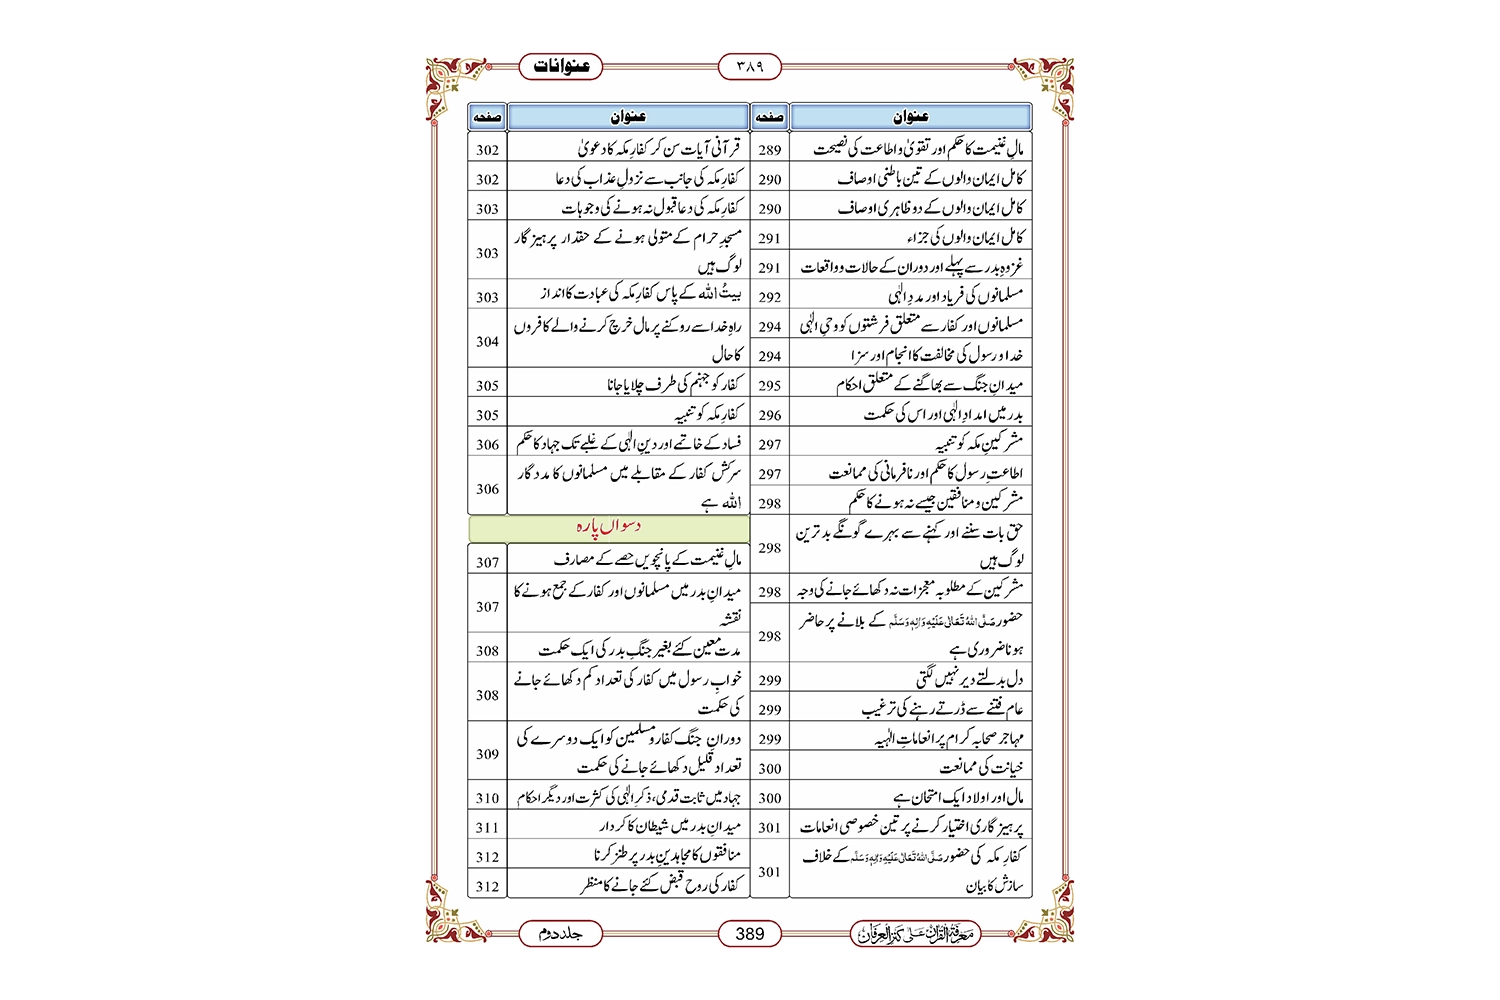 عنوانات
۳۸۹
عنوان صفحہ
مالِ غنیمت کا حکم اور تقویٰ و اطاعت کی نصیحت 289
کامل ایمان والوں کے تین باطنی اوصاف 290
کامل ایمان والوں کے دو ظاہری اوصاف 290
کامل ایمان والوں کی جزاء 291
غزوہِ بدر سے پہلے اور دوران کے حالات و واقعات 291
مسلمانوں کی فریاد اور مددِ الٰہی 292
مسلمانوں اور کفار سے متعلق فرشتوں کو وحیِ الٰہی 294
خدا و رسول کی مخالفت کا انجام اور سزا 294
میدانِ جنگ سے بھاگنے کے متعلق احکام 295
بدر میں امدادِ الٰہی اور اس کی حکمت 296
مشرکینِ مکہ کو تنبیہ 297
اطاعتِ رسول کا حکم اور نافرمانی کی ممانعت 297
مشرکین و منافقین جیسے نہ ہونے کا حکم 298
حق بات سننے اور کہنے سے بہرے گونگے بدترین
لوگ ہیں 298
مشرکین کے مطلوبہ معجزات نہ دکھائے جانے کی وجہ 298
حضور صَلَّی اللہُ تَعَالٰی عَلَیْہِ وَاٰلِہٖ وَسَلَّم کے بلانے پر حاضر
ہونا ضروری ہے 298
دل بدلتے دیر نہیں لگتی 299
عام فتنے سے ڈرتے رہنے کی ترغیب 299
مہاجر صحابہ کرام پر انعاماتِ الٰہیہ 299
خیانت کی ممانعت 300
مال اور اولاد ایک امتحان ہے 300
پرہیزگاری اختیار کرنے پر تین خصوصی انعامات 301
کفارِ مکہ کی حضور صَلَّی اللہُ تَعَالٰی عَلَیْہِ وَاٰلِہٖ وَسَلَّم کے خلاف
سازش کا بیان 301
عنوان صفحہ
قرآنی آیات سن کر کفارِ مکہ کا دعویٰ 302
کفارِ مکہ کی جانب سے نزولِ عذاب کی دعا 302
کفارِ مکہ کی دعا قبول نہ ہونے کی وجوہات 303
مسجدِ حرام کے متولی ہونے کے حقدار پرہیزگار
لوگ ہیں 303
بیتُ اللہ کے پاس کفارِ مکہ کی عبادت کا انداز 303
راہِ خدا سے روکنے پر مال خرچ کرنے والے کافروں
کا حال 304
کفار کو جہنم کی طرف چلایا جانا 305
کفارِ مکہ کو تنبیہ 305
فساد کے خاتمے اور دینِ الٰہی کے غلبے تک جہاد کا حکم 306
سرکش کفار کے مقابلے میں مسلمانوں کا مددگار
اللہ ہے 306
دسواں پارہ
مالِ غنیمت کے پانچویں حصے کے مصارف 307
میدانِ بدر میں مسلمانوں اور کفار کے جمع ہونے کا
نقشہ 307
مدت معین کئے بغیر جنگِ بدر کی ایک حکمت 308
خوابِ رسول میں کفار کی تعداد کم دکھائے جانے
کی حکمت 308
دورانِ جنگ کفار و مسلمین کو ایک دوسرے کی
تعداد قلیل دکھائے جانے کی حکمت 309
جہاد میں ثابت قدمی، ذکرِ الٰہی کی کثرت اور دیگر احکام 310
میدانِ بدر میں شیطان کا کردار 311
منافقوں کا مجاہدینِ بدر پر طنز کرنا 312
کفار کی روح قبض کئے جانے کا منظر 312
معرفۃ القرآن علی کنز العرفان
389
جلد دوم